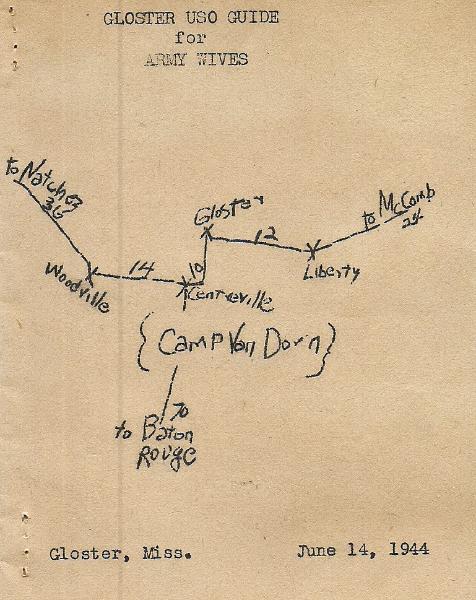 GLOSTER USO GUIDE
for
ARMY WIVES
to Natchez
36
to McComb
24
Gloster
12
Liberty
Woodville
14
10
Centreville
{Camp Van Dorn}
70
to Baton
Rouge
Gloster, Miss.
June 14, 1944